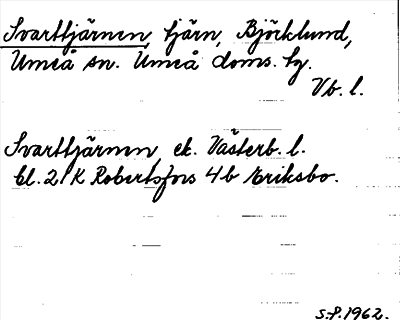 Svarttjärnen, tjärn, Björklund,
Umeå sn. Umeå doms. hg.
Vb. l.
Svarttjärnen, ek. Västerb. l.
bl. 21 K Robertsfors 4b Eriksbo.
S.f. 1962.